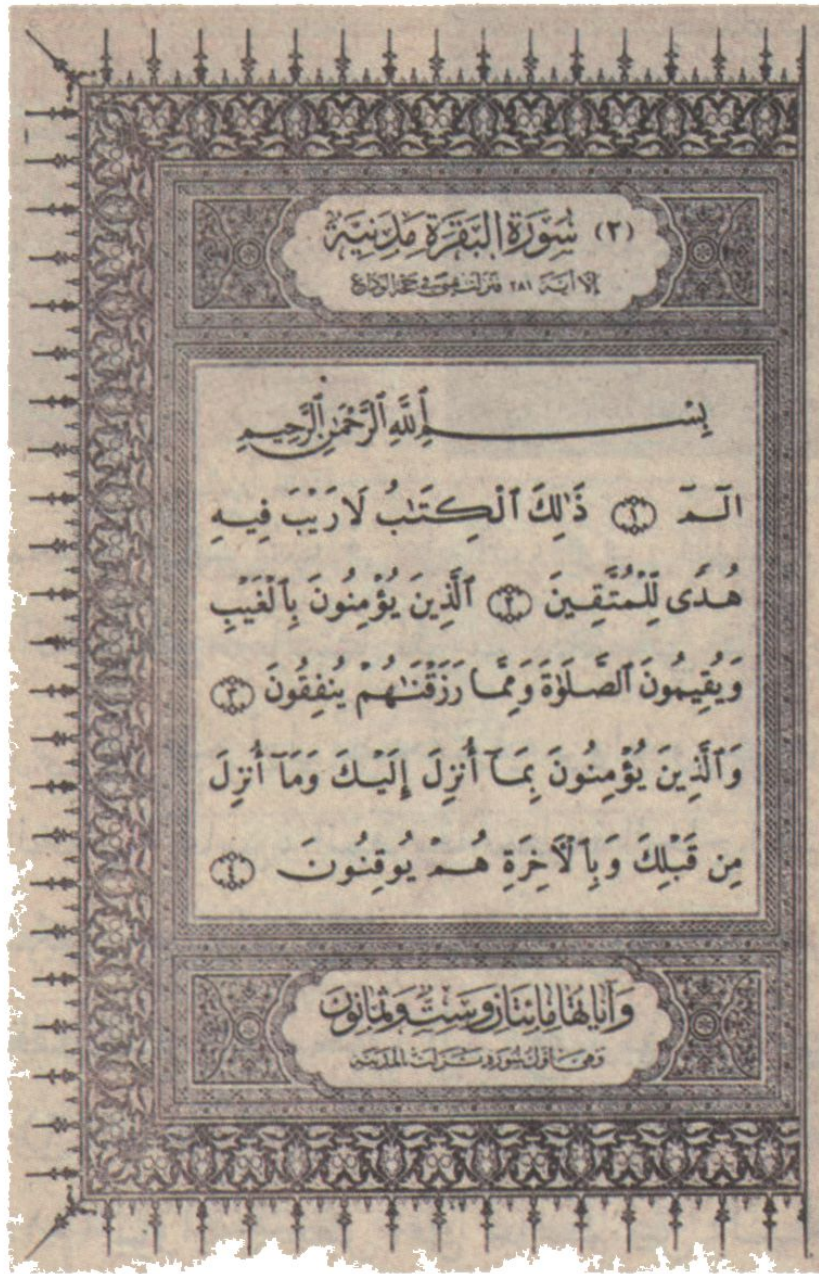 (٢) سُورَةُ الْبَقَرَةِ مَدَنِيَّة
إلا آية ٢٨١ فنزلت بمنى في حجة الوداع
بِسْمِ ٱللَّهِ ٱلرَّحْمَٰنِ ٱلرَّحِيمِ
الٓمٓ ۝١ ذَٰلِكَ ٱلْكِتَٰبُ لَا رَيْبَ فِيهِ
هُدًى لِّلْمُتَّقِينَ ۝٢ ٱلَّذِينَ يُؤْمِنُونَ بِٱلْغَيْبِ
وَيُقِيمُونَ ٱلصَّلَوٰةَ وَمِمَّا رَزَقْنَٰهُمْ يُنفِقُونَ ۝٣
وَٱلَّذِينَ يُؤْمِنُونَ بِمَآ أُنزِلَ إِلَيْكَ وَمَآ أُنزِلَ
مِن قَبْلِكَ وَبِٱلْأَخِرَةِ هُمْ يُوقِنُونَ ۝٤
وآياتها مائتان وست وثمانون
وهي أول سورة نزلت بالمدينة